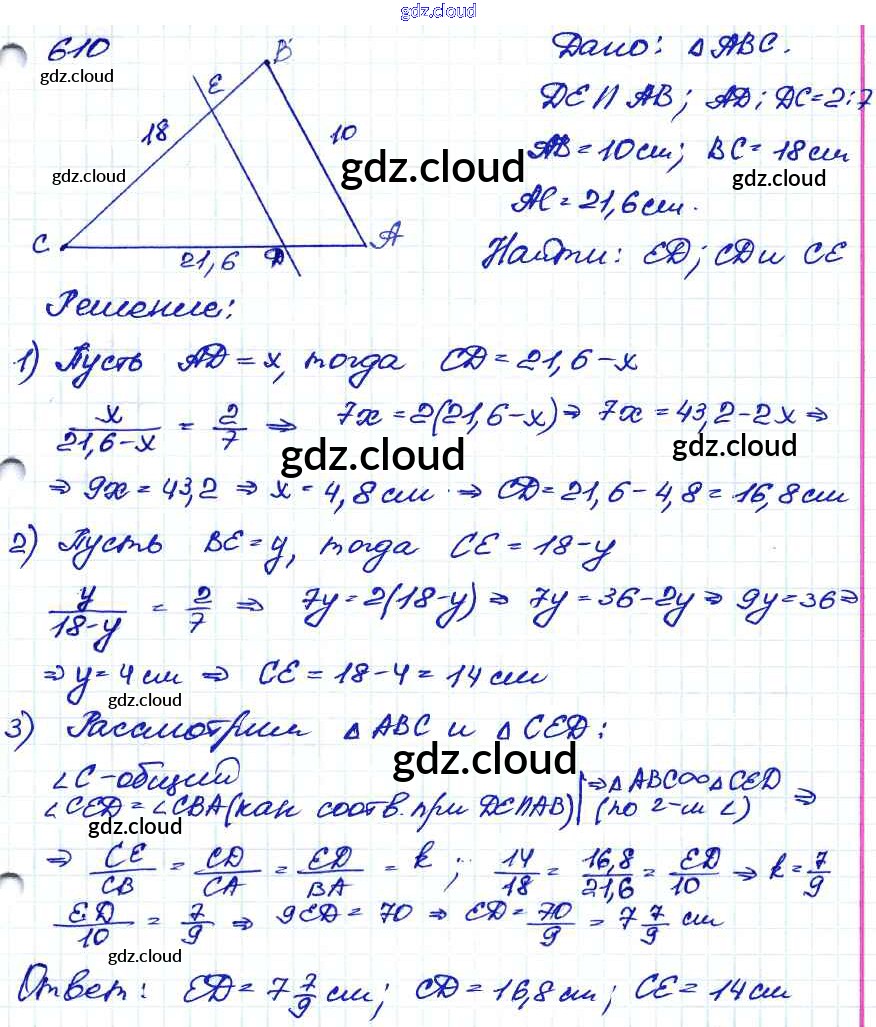 gdz.cloud
610
gdz.cloud
B
E
18
10
gdz.cloud
gdz.cloud
C
21,6
D
A
Дано: △ABC.
DE∩AB; AD:DC=2:7
AB=10см; BC=18см
gdz.cloud
AC=21,6см.
Найти: ED; CD и CE
Решение:
1) Пусть AD=x, тогда CD=21,6-x
x/(21,6-x) = 2/7 ⇒ 7x=2(21,6-x) ⇒ 7x=43,2-2x ⇒
gdz.cloud
gdz.cloud
⇒ 9x=43,2 ⇒ x=4,8см ⇒ CD=21,6-4,8=16,8см
2) Пусть BE=y, тогда CE=18-y
y/(18-y) = 2/7 ⇒ 7y=2(18-y) ⇒ 7y=36-2y ⇒ 9y=36 ⇒
⇒ y=4см ⇒ CE=18-4=14см
gdz.cloud
3) Рассмотрим △ABC и △CED:
gdz.cloud
∠C-общий
∠CED=∠CBA(как соотв. при DE∩AB) | ⇒ △ABC∞△CED (по 2-м ∠) ⇒
gdz.cloud
⇒ CE/CB = CD/CA = ED/BA = k; 14/18 = 16,8/21,6 = ED/10 ⇒ k=7/9
ED/10 = 7/9 ⇒ 9ED=70 ⇒ ED=70/9=7 7/9 см
gdz.cloud
Ответ: ED=7 7/9 см; CD=16,8см; CE=14см